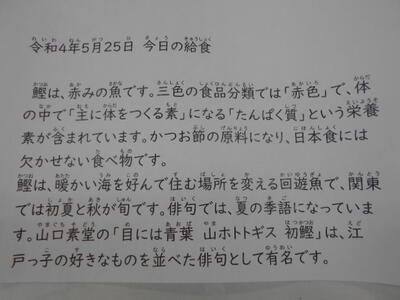 令和4年5月25日 今日の給食
鰹は、赤みの魚です。三色の食品分類では「赤色」で、体
の中で「主に体をつくる質」になる「たんぱく質」という栄養
素が含まれています。かつお節の原料になり、日本食には
欠かせない食べ物です。
鰹は、暖かい海を好んで住む場所を変える回遊魚で、関東
では初夏と秋が旬です。俳句では、夏の季語になっていま
す。山口素堂の「目には青葉 山ホトトギス 初鰹」は、江
戸っ子の好きなものを並べた俳句として有名です。